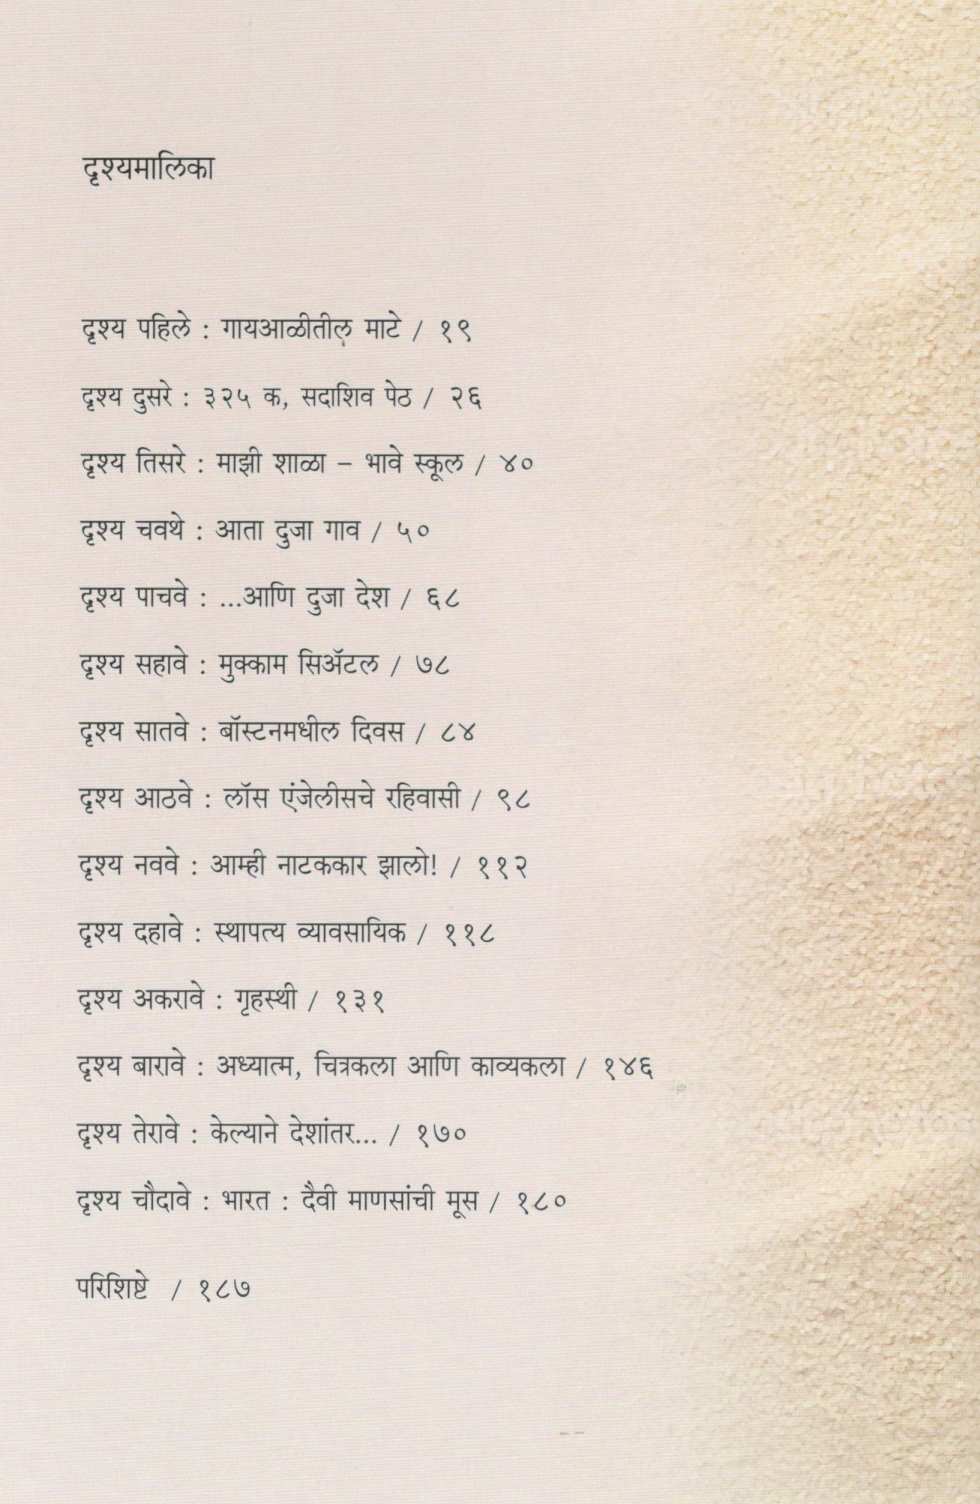 दृश्यमालिका
दृश्य पहिले : गायआळीतील माटे / १९
दृश्य दुसरे : ३२५ क, सदाशिव पेठ / २६
दृश्य तिसरे : माझी शाळा – भावे स्कूल / ४०
दृश्य चवथे : आता दुजा गाव / ५०
दृश्य पाचवे : ...आणि दुजा देश / ६८
दृश्य सहावे : मुक्काम सिॲटल / ७८
दृश्य सातवे : बॉस्टनमधील दिवस / ८४
दृश्य आठवे : लॉस एंजेलीसचे रहिवासी / ९८
दृश्य नववे : आम्ही नाटककार झालो! / ११२
दृश्य दहावे : स्थापत्य व्यावसायिक / ११८
दृश्य अकरावे : गृहस्थी / १३१
दृश्य बारावे : अध्यात्म, चित्रकला आणि काव्यकला / १४६
दृश्य तेरावे : केल्याने देशांतर... / १७०
दृश्य चौदावे : भारत : दैवी माणसांची मूस / १८०
परिशिष्टे / १८७